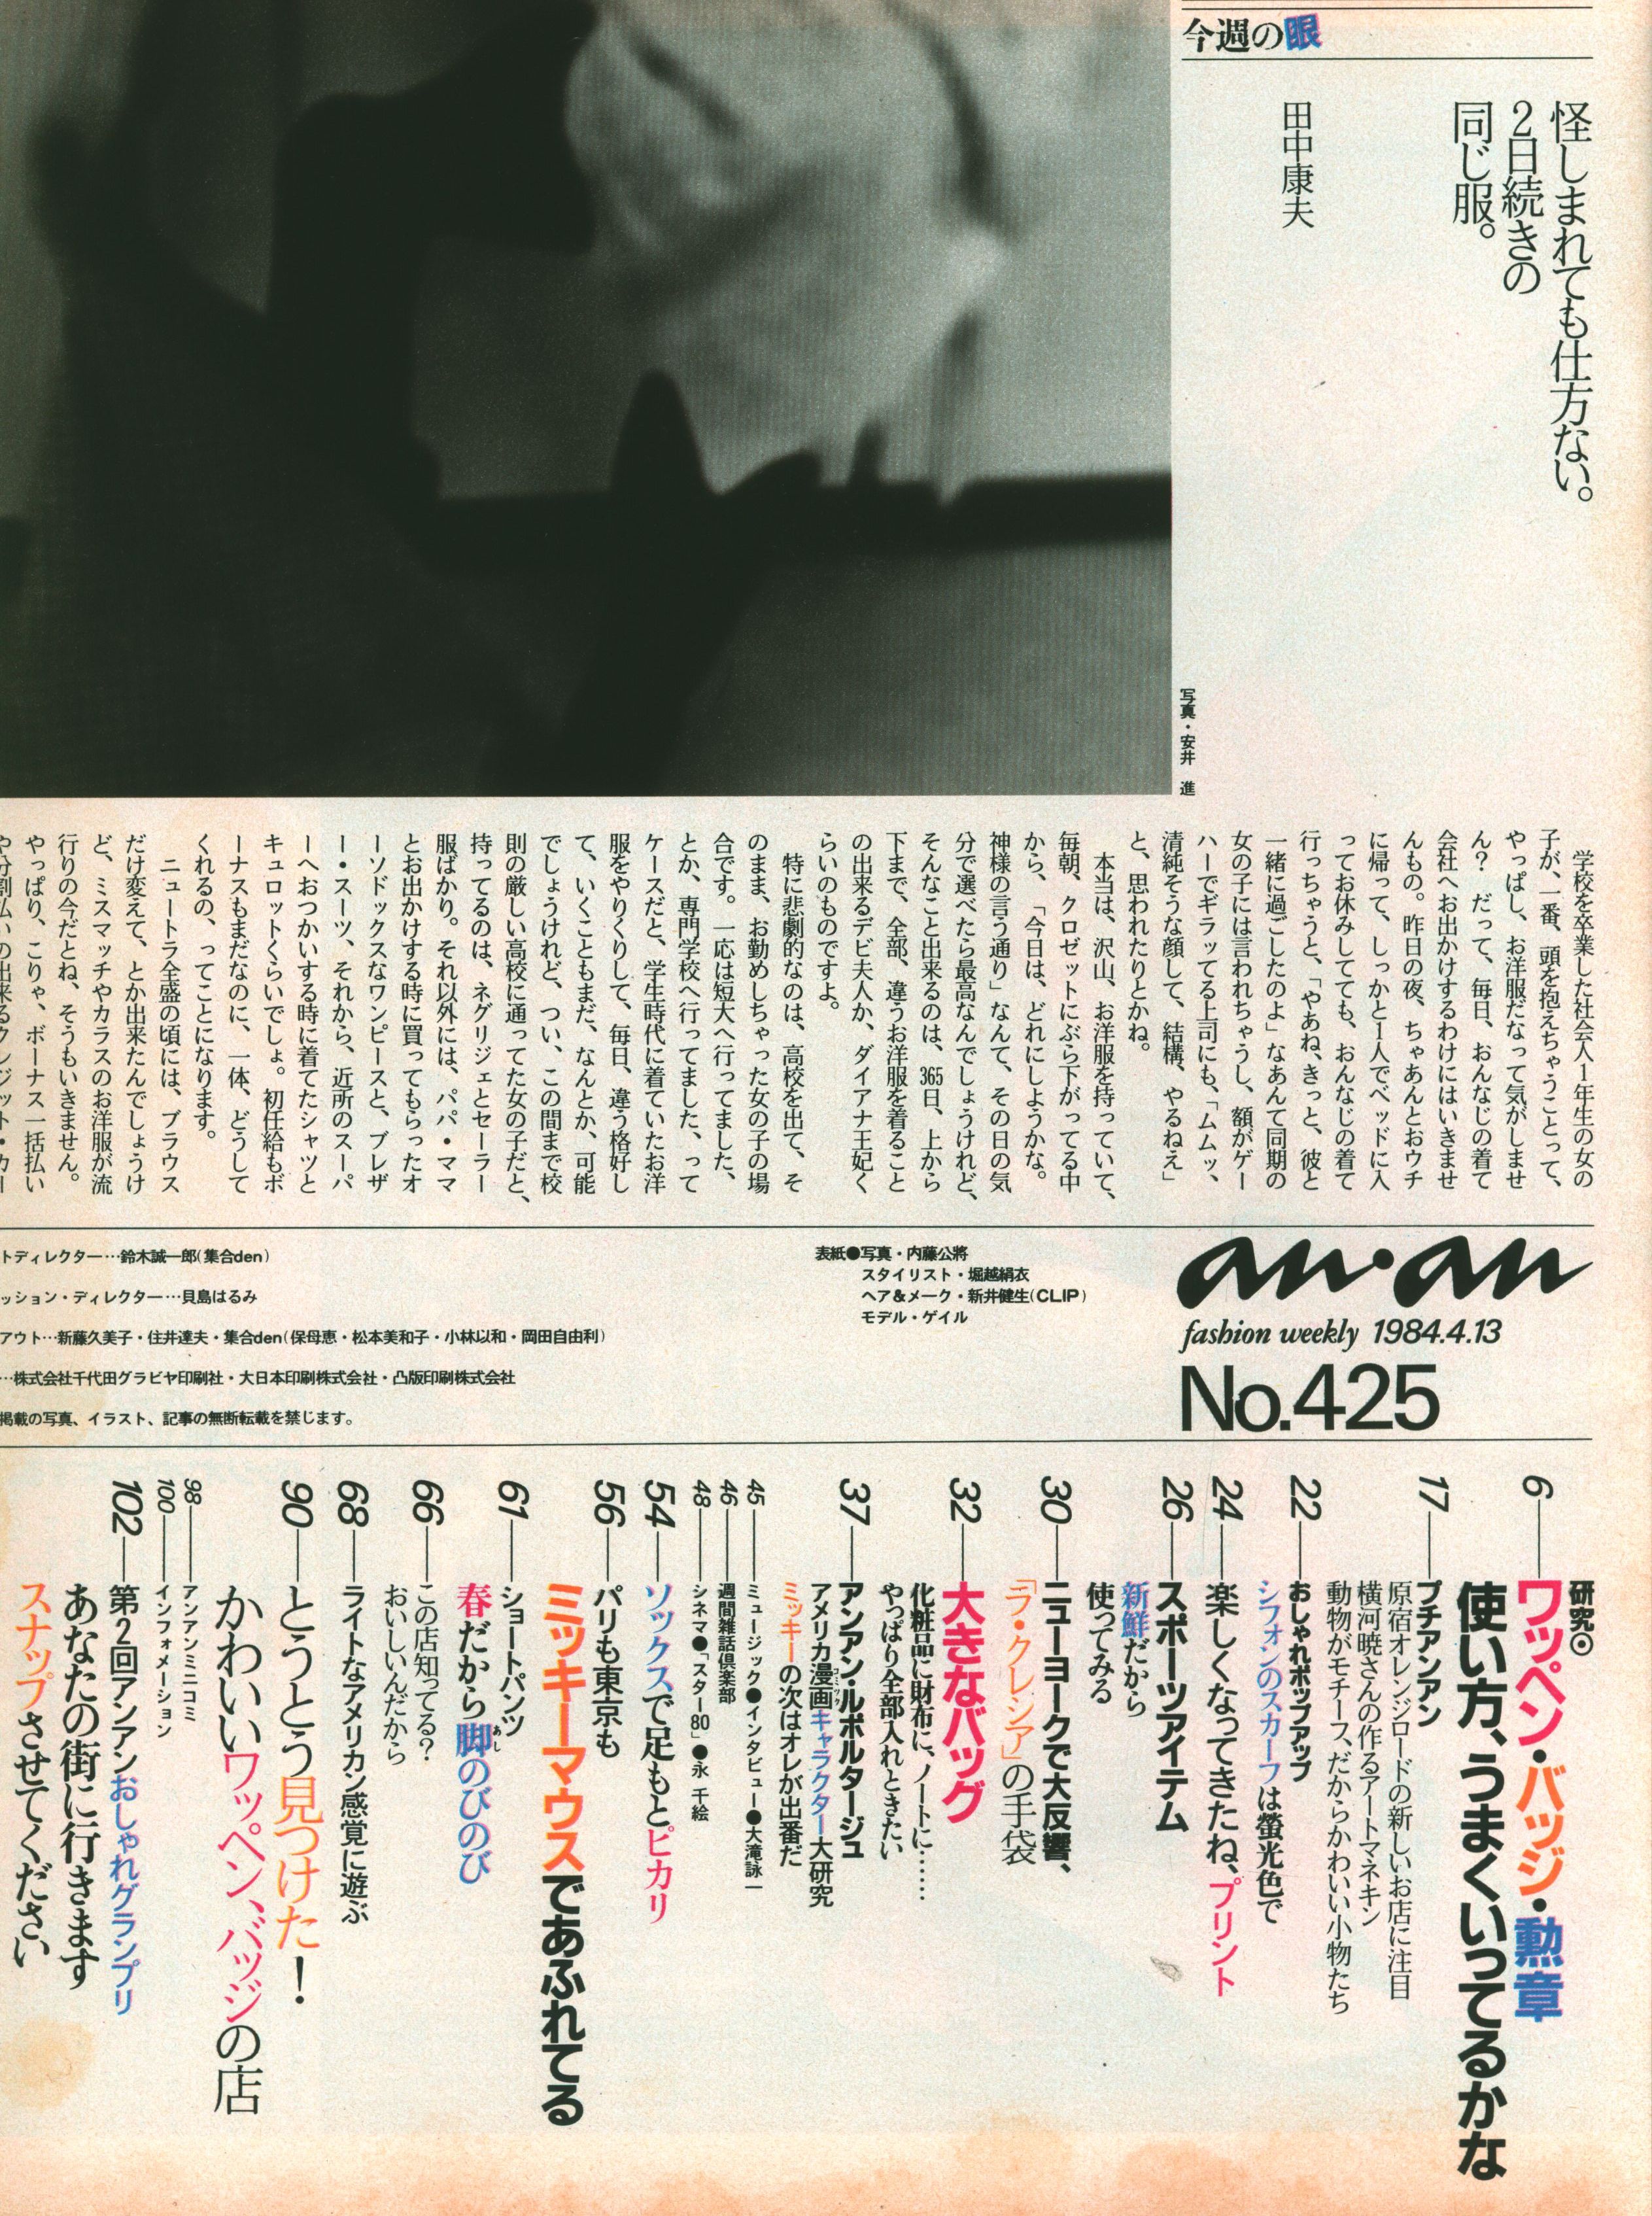 今週の眼
怪しまれても仕方ない。
2日続きの
同じ服。
田中康夫
写真・安井 進
学校を卒業した社会人1年生の女の
子が、一番、頭を抱えちゃうことって、
やっぱし、お洋服だなって気がしませ
ん? だって、毎日、おんなじの着て
会社へお出かけするわけにはいきませ
んもの。昨日の夜、ちゃあんとおウチ
に帰って、しっかと1人でベッドに入
ってお休みしてても、おんなじの着て
行っちゃうと、「やあね、きっと、彼と
一緒に過ごしたのよ」なあんて同期の
女の子には言われちゃうし、額がゲー
ハーでギラッてる上司にも、「ムムッ、
清純そうな顔して、結構、やるねえ」
と、思われたりとかね。
本当は、沢山、お洋服を持っていて、
毎朝、クロゼットにぶら下がってる中
から、「今日は、どれにしようかな。
神様の言う通り」なんて、その日の気
分で選べたら最高なんでしょうけれど、
そんなこと出来るのは、365日、上から
下まで、全部、違うお洋服を着ること
の出来るデビ夫人か、ダイアナ王妃く
らいのものですよ。
特に悲劇的なのは、高校を出て、そ
のまま、お勤めしちゃった女の子の場
合です。一応は短大へ行ってました、
とか、専門学校へ行ってました、って
ケースだと、学生時代に着ていたお洋
服をやりくりして、毎日、違う格好し
て、いくこともまだ、なんとか、可能
でしょうけれど、つい、この間まで校
則の厳しい高校に通ってた女の子だと、
持ってるのは、ネグリジェとセーラー
服ばかり。それ以外には、パパ・ママ
とお出かけする時に買ってもらったオ
ーソドックスなワンピースと、ブレザ
ー・スーツ、それから、近所のスーパ
ーへおつかいする時に着てたシャツと
キュロットくらいでしょ。初任給もボ
ーナスもまだなのに、一体、どうして
くれるの、ってことになります。
ニュートラ全盛の頃には、ブラウス
だけ変えて、とか出来たんでしょうけ
ど、ミスマッチやカラスのお洋服が流
行りの今だとね、そうもいきません。
やっぱり、こりゃ、ボーナス一括払い
や分割払いの出来るクレジット・カー
an・an
fashion weekly 1984.4.13
No.425
表紙●写真・内藤公將
スタイリスト・堀越絹衣
ヘア&メーク・新井健生(CLIP)
モデル・ゲイル
トディレクター…鈴木誠一郎(集合den)
ッション・ディレクター…貝島はるみ
アウト…新藤久美子・住井達夫・集合den(保母恵・松本美和子・小林以和・岡田自由利)
…株式会社千代田グラビヤ印刷社・大日本印刷株式会社・凸版印刷株式会社
掲載の写真、イラスト、記事の無断転載を禁じます。
研究◎
6 ワッペン・バッジ・勲章
使い方、うまくいってるかな
17 プチアンアン
原宿オレンジロードの新しいお店に注目
横河暁さんの作るアートマネキン
動物がモチーフ、だからかわいい小物たち
22 おしゃれポップアップ
シフォンのスカーフは螢光色で
24 楽しくなってきたね、プリント
26 スポーツアイテム
新鮮だから
使ってみる
30 ニューヨークで大反響、
「ラ・クレシア」の手袋
32 大きなバッグ
化粧品に財布に、ノートに……
やっぱり全部入れときたい
37 アンアン・ルポルタージュ
アメリカ漫画キャラクター大研究
コミック
ミッキーの次はオレが出番だ
45 ミュージック●インタビュー●大滝詠一
46 週間雑話倶楽部
48 シネマ●「スター80」●永 千絵
54 ソックスで足もとピカリ
56 パリも東京も
ミッキーマウスであふれてる
61 ショートパンツ
春だから脚のびのび
あし
66 この店知ってる?
おいしいんだから
68 ライトなアメリカン感覚に遊ぶ
90 とうとう見つけた!
かわいいワッペン、バッジの店
98 アンアンミニコミ
100 インフォメーション
102 第2回アンアンおしゃれグランプリ
あなたの街に行きます
スナップさせてください